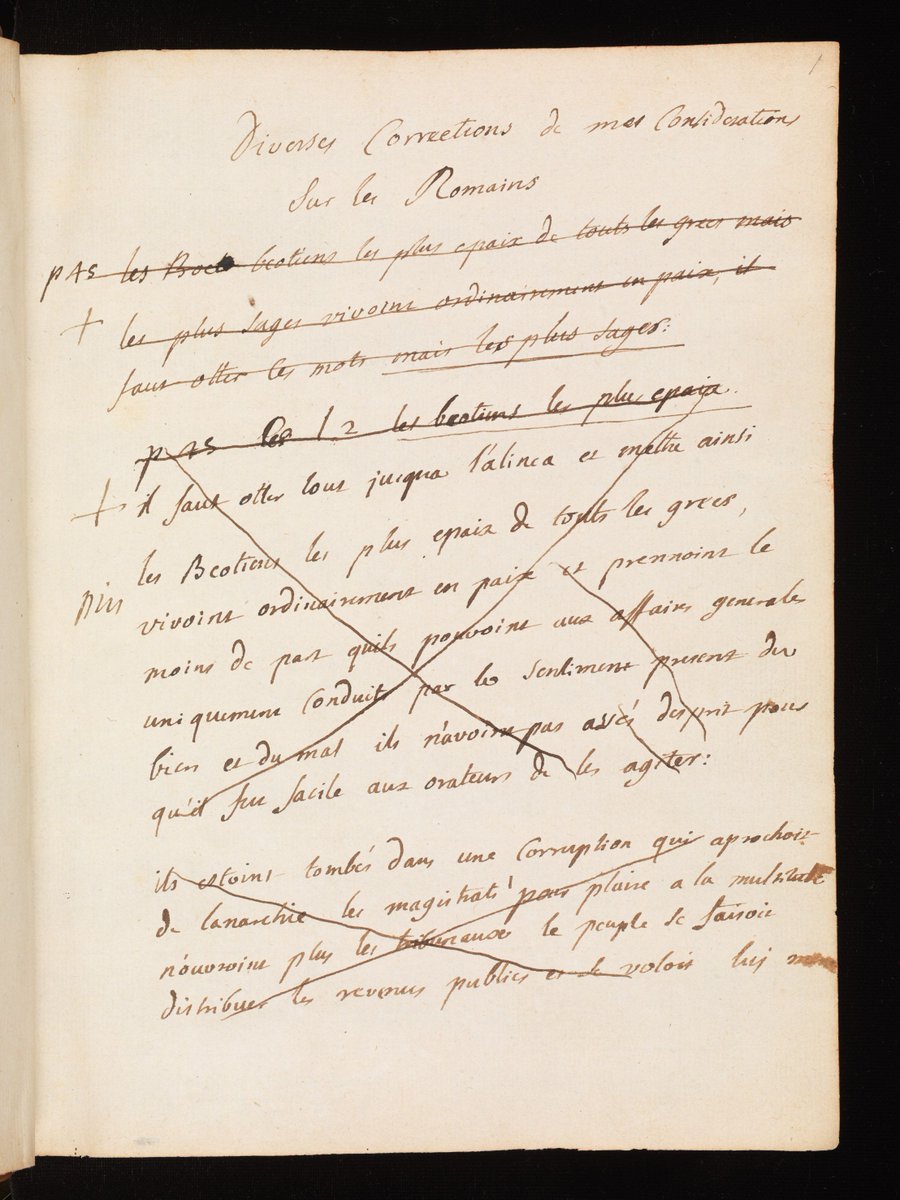 1
Diverses Corrections de mes Considerations
Sur les Romains
pas les Boet beotiens les plus epaix de touts les grecs mais
+ les plus sages vivoint ordinairement en paix, il
faut otter les mots mais les plus sages:
pas l. 2 les beotiens les plus epaix.
+ il faut otter tout jucqua l'alinea et mettre ainsi
les Beotiens les plus epaix de touts les grecs,
vivoint ordinairement en paix et prennoint le
moins de part quils pouvoint aux affaires generales
uniquement conduits par le sentiment present du
bien et du mal ils n'avoint pas assés desprit pour
qu'il fut facile aux orateurs de les agiter:
ils estoint tombés dans une corruption qui aprochoit
de lanarchie les magistrats pour plaire a la multitude
n'ouvroint plus les tribunaux le peuple se faisoit
distribuer les revenus publics et se voloit lui meme